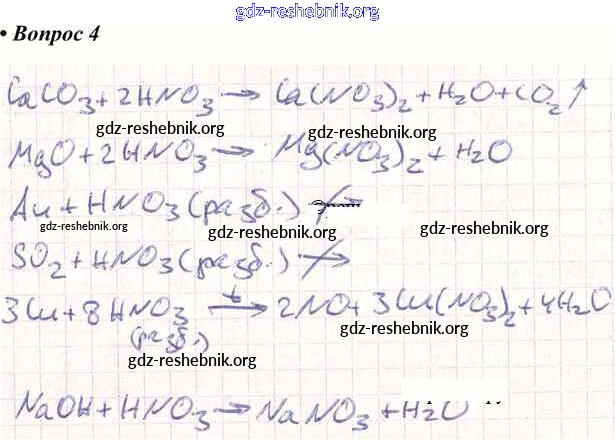 gdz-reshebnik.org
• Вопрос 4
CaCO3 + 2HNO3 → Ca(NO3)2 + H2O + CO2↑
gdz-reshebnik.org gdz-reshebnik.org
MgO + 2HNO3 → Mg(NO3)2 + H2O
Au + HNO3 (разб.) ↛
gdz-reshebnik.org gdz-reshebnik.org gdz-reshebnik.org
SO2 + HNO3 (разб.) ↛
3Cu + 8HNO3 (разб.) t→ 2NO + 3Cu(NO3)2 + 4H2O
gdz-reshebnik.org
gdz-reshebnik.org
NaOH + HNO3 → NaNO3 + H2O